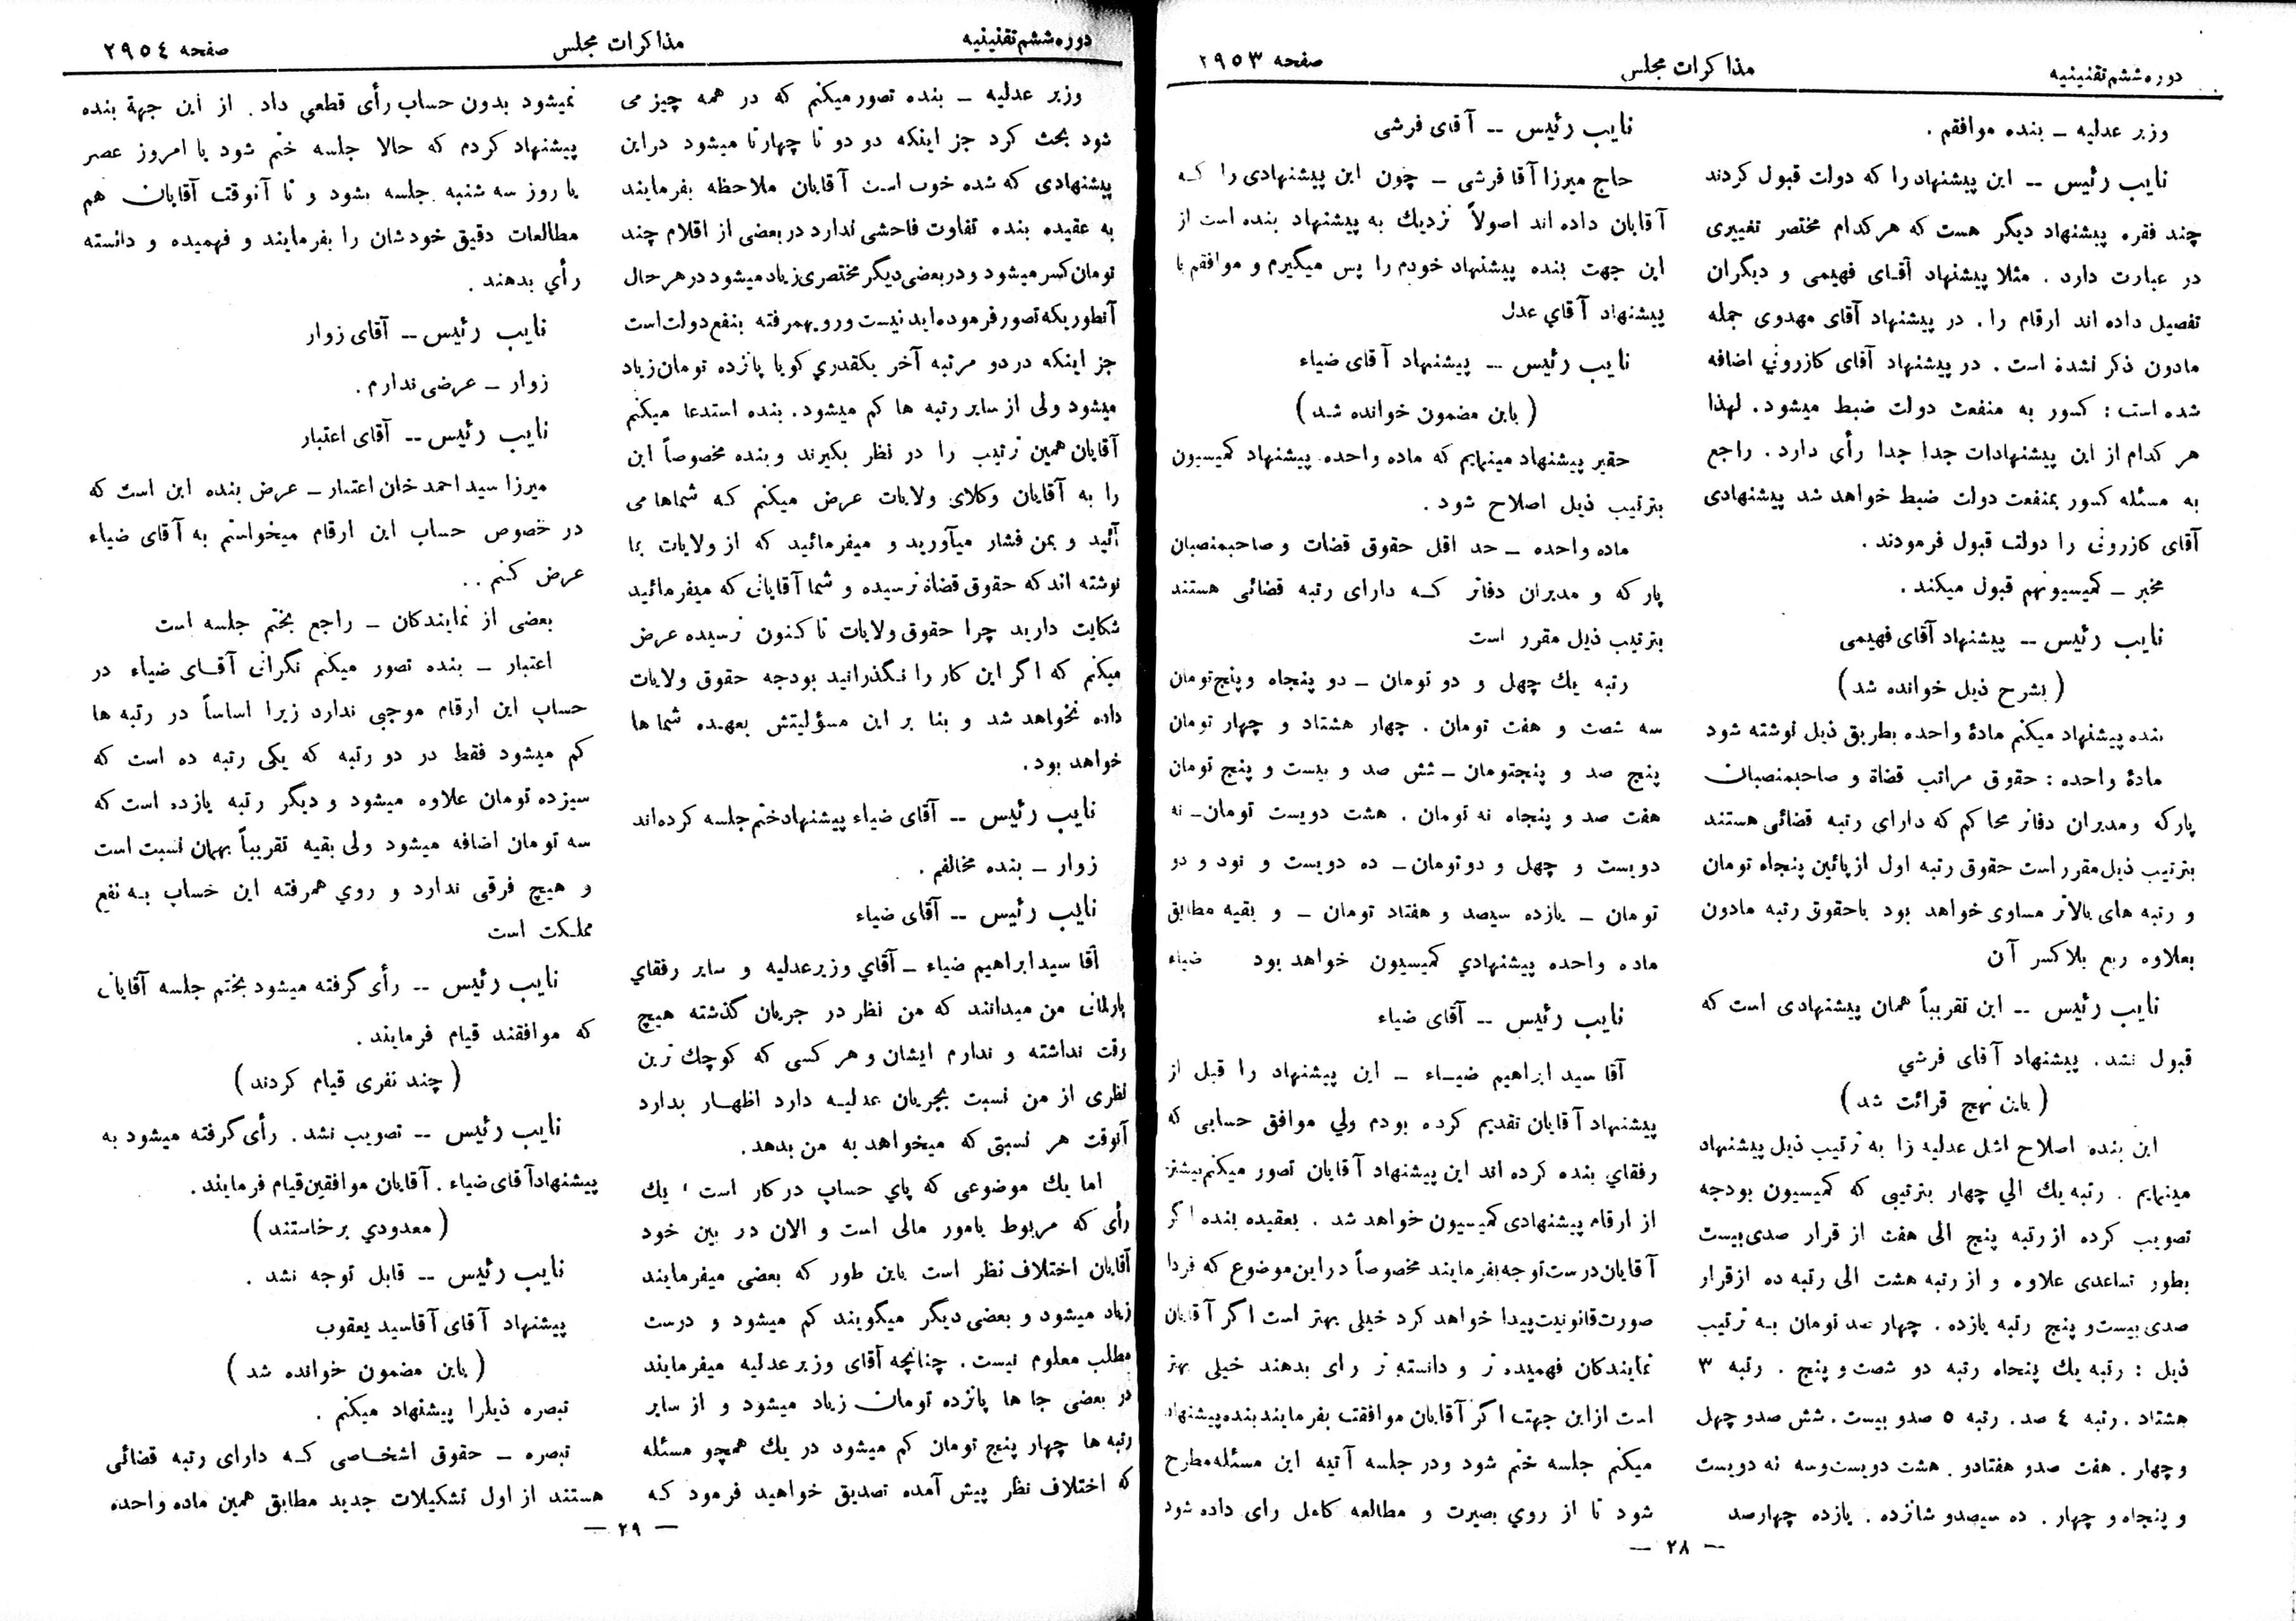 دوره ششم تقنینیه
مذاکرات مجلس
صفحه ۲۹۵۳
وزیر عدلیه ــ بنده موافقم .
نایب رئیس -- این پیشنهاد را که دولت قبول کردند
چند فقره پیشنهاد دیگر هست که هر کدام مختصر تغییری
در عبارت دارد . مثلا پیشنهاد آقای فهیمی و دیگران
تفصیل داده اند ارقام را . در پیشنهاد آقای مهدوی جمله
مادون ذکر نشده است . در پیشنهاد آقای کازرونی اضافه
شده است : کسور به منفعت دولت ضبط میشود . لهذا
هر کدام از این پیشنهادات جدا جدا رأی دارد . راجع
به مسئله کسور بمنفعت دولت ضبط خواهد شد پیشنهادی
آقای کازرونی را دولت قبول فرمودند .
مخبر ــ کمیسیونهم قبول میکند .
نایب رئیس -- پیشنهاد آقای فهیمی
( بشرح ذیل خوانده شد )
بنده پیشنهاد میکنم مادهٔ واحده بطریق ذیل نوشته شود
مادهٔ واحده : حقوق مراتب قضاة و صاحبمنصبان
پارکه و مدیران دفاتر محاکم که دارای رتبه قضائی هستند
بترتیب ذیل مقرر است حقوق رتبه اول از پائین پنجاه تومان
و رتبه های بالاتر مساوی خواهد بود با حقوق رتبه مادون
بعلاوه ربع بلاکسر آن
نایب رئیس -- این تقریباً همان پیشنهادی است که
قبول نشد . پیشنهاد آقای فرشی
( باین نهج قرائت شد )
این بنده اصلاح اشل عدلیه را به ترتیب ذیل پیشنهاد
مینمایم . رتبه یك الی چهار بترتیبی که کمیسیون بودجه
تصویب کرده از رتبه پنج الی هفت از قرار صدی بیست
بطور تصاعدی علاوه و از رتبه هشت الی رتبه ده از قرار
صدی بیست و پنج رتبه یازده . چهار صد تومان به ترتیب
ذیل : رتبه یك پنجاه رتبه دو شصت و پنج . رتبه ۳
هشتاد . رتبه ٤ صد . رتبه ٥ صد و بیست . شش صد و چهل
و چهار . هفت صد و هفتادو . هشت دویست و سه نه دویست
و پنجاه و چهار . ده سیصد و شانزده . یازده چهارصد
نایب رئیس -- آقای فرشی
حاج میرزا آقا فرشی ــ چون این پیشنهادی را که
آقایان داده اند اصولاً نزدیك به پیشنهاد بنده است از
این جهت بنده پیشنهاد خودم را پس میگیرم و موافقم با
پیشنهاد آقای عدل
نایب رئیس -- پیشنهاد آقای ضیاء
( باین مضمون خوانده شد )
حقیر پیشنهاد مینمایم که ماده واحده پیشنهاد کمیسیون
بترتیب ذیل اصلاح شود .
ماده واحده ــ حد اقل حقوق قضات و صاحبمنصبان
پارکه و مدیران دفاتر که دارای رتبه قضائی هستند
بترتیب ذیل مقرر است
رتبه یك چهل و دو تومان ــ دو پنجاه و پنج تومان
سه شصت و هفت تومان . چهار هشتاد و چهار تومان
پنج صد و پنجتومان ــ شش صد و بیست و پنج تومان
هفت صد و پنجاه نه تومان . هشت دویست تومان ــ نه
دویست و چهل و دو تومان ــ ده دویست و نود و دو
تومان ــ یازده سیصد و هفتاد تومان ــ و بقیه مطابق
ماده واحده پیشنهادی کمیسیون خواهد بود ضیاء
نایب رئیس -- آقای ضیاء
آقا سید ابراهیم ضیاء ــ این پیشنهاد را قبل از
پیشنهاد آقایان تقدیم کرده بودم ولی موافق حسابی که
رفقای بنده کرده اند این پیشنهاد آقایان تصور میکنم بیشتر
از ارقام پیشنهادی کمیسیون خواهد شد . بعقیده بنده اگر
آقایان درست توجه بفرمایند مخصوصاً در این موضوع که فردا
صورت قانونیت پیدا خواهد کرد خیلی بهتر است اگر آقایان
نمایندکان فهمیده تر و دانسته تر رای بدهند خیلی بهتر
است از این جهت اگر آقایان موافقت بفرمایند بنده پیشنهاد
میکنم جلسه ختم شود ودر جلسه آتیه این مسئله مطرح
شود تا از روی بصیرت و مطالعه کامل رای داده شود
— ۲۸ —
دوره ششم تقنینیه
مذاکرات مجلس
صفحه ۲۹۵٤
وزیر عدلیه ــ بنده تصور میکنم که در همه چیز می
شود بحث کرد جز اینکه دو دو تا چهار تا میشود در این
پیشنهادی که شده خوب است آقایان ملاحظه بفرمایند
به عقیده بنده تفاوت فاحشی ندارد در بعضی از اقلام چند
تومان کسر میشود و در بعضی دیگر مختصری زیاد میشود در هر حال
آنطوریکه تصور فرموده اید نیست ورویهمرفته بنفع دولت است
جز اینکه در دو مرتبه آخر یکقدری گویا پانزده تومان زیاد
میشود ولی از سایر رتبه ها کم میشود . بنده استدعا میکنم
آقایان همین ترتیب را در نظر بگیرند و بنده مخصوصاً این
را به آقایان وکلای ولایات عرض میکنم که شماها می
آئید و بمن فشار میآورید و میفرمائید که از ولایات بما
نوشته اند که حقوق قضاة نرسیده و شما آقایانی که میفرمائید
شکایت دارید چرا حقوق ولایات تا کنون نرسیده عرض
میکنم که اگر این کار را نگذرانید بودجه حقوق ولایات
داده نخواهد شد و بنا بر این مسؤلیتش بعهده شماها
خواهد بود .
نایب رئیس -- آقای ضیاء پیشنهاد ختم جلسه کرده اند
زوار ــ بنده مخالفم .
نایب رئیس -- آقای ضیاء
آقا سید ابراهیم ضیاء ــ آقای وزیر عدلیه و سایر رفقای
پارلمانی من میدانند که من نظر در جریان گذشته هیچ
وقت نداشته و ندارم ایشان و هر کسی که کوچك ترین
نظری از من نسبت بجریان عدلیه دارد اظهار بدارد
آنوقت هر نسبتی که میخواهد به من بدهد .
اما یك موضوعی که پای حساب در کار است ، یك
رأی که مربوط بامور مالی است و الان در بین خود
آقایان اختلاف نظر است باین طور که بعضی میفرمایند
زیاد میشود و بعضی دیگر میگویند کم میشود و درست
مطلب معلوم نیست . چنانچه آقای وزیر عدلیه میفرمایند
در بعضی جا ها پانزده تومان زیاد میشود و از سایر
رتبه ها چهار پنج تومان کم میشود در یك همچو مسئله
که اختلاف نظر پیش آمده تصدیق خواهید فرمود که
نمیشود بدون حساب رأی قطعی داد . از این جهة بنده
پیشنهاد کردم که حالا جلسه ختم شود یا امروز عصر
یا روز سه شنبه جلسه بشود و تا آنوقت آقایان هم
مطالعات دقیق خودشان را بفرمایند و فهمیده و دانسته
رأی بدهند .
نایب رئیس -- آقای زوار
زوار ــ عرضی ندارم .
نایب رئیس -- آقای اعتبار
میرزا سید احمد خان اعتبار ــ عرض بنده این است که
در خصوص حساب این ارقام میخواستم به آقای ضیاء
عرض کنم . .
بعضی از نمایندکان ــ راجع بختم جلسه است
اعتبار ــ بنده تصور میکنم نگرانی آقای ضیاء در
حساب این ارقام موجبی ندارد زیرا اساساً در رتبه ها
کم میشود فقط در دو رتبه که یکی رتبه ده است که
سیزده تومان علاوه میشود و دیگر رتبه یازده است که
سه تومان اضافه میشود ولی بقیه تقریباً بهمان نسبت است
و هیچ فرقی ندارد و روی همرفته این حساب به نفع
مملکت است
نایب رئیس -- رأی گرفته میشود بختم جلسه آقایانی
که موافقند قیام فرمایند .
( چند نفری قیام کردند )
نایب رئیس -- تصویب نشد . رأی گرفته میشود به
پیشنهاد آقای ضیاء . آقایان موافقین قیام فرمایند .
( معدودی برخاستند )
نایب رئیس -- قابل توجه نشد .
پیشنهاد آقای آقاسید یعقوب
( باین مضمون خوانده شد )
تبصره ذیلرا پیشنهاد میکنم .
تبصره ــ حقوق اشخاصی که دارای رتبه قضائی
هستند از اول تشکیلات جدید مطابق همین ماده واحده
— ۲۹ —